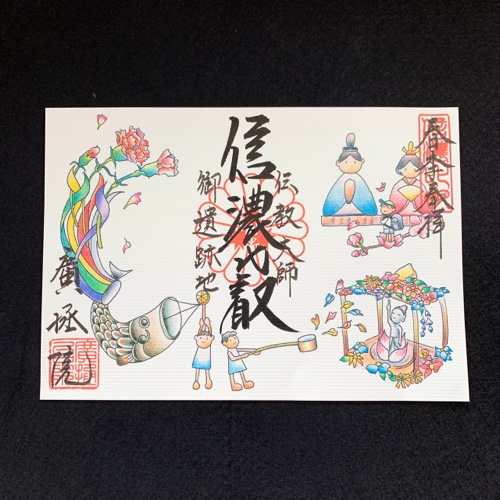 春季敬拝
伝教大師
信濃比叡
御遺跡地
廣拯院